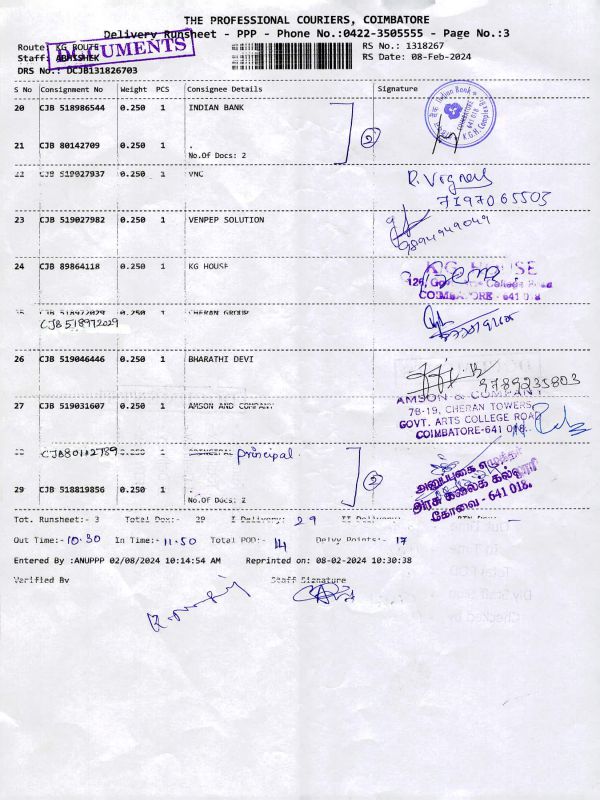 THE PROFESSIONAL COURIERS, COIMBATORE
Delivery Runsheet - PPP - Phone No.:0422-3505555 - Page No.:3
Route: KG ROUTE
RS No.: 1318267
DOCUMENTS
Staff: ABHISHEK
RS Date: 08-Feb-2024
DRS No.: DCJB131826703
S No Consignment No Weight PCS Consignee Details Signature
20 CJB 518986544 0.250 1 INDIAN BANK
Indian Bank
COIMBATORE
641 018
21 CJB 80142709 0.250 1 .
No.Of Docs: 2
2
22 CJB 519027937 0.250 1 VNC
R. Vignesh
7197065503
23 CJB 519027982 0.250 1 VENPEP SOLUTION
24 CJB 89864118 0.250 1 KG HOUSE
COIMBATORE - 641 018
25 CJB 518972029 0.250 1 CHERAN GROUP
CJB 518972029
26 CJB 519046446 0.250 1 BHARATHI DEVI
9789235803
27 CJB 519031607 0.250 1 AMSON AND COMPANY
AMSON & COMPANY
7B-19, CHERAN TOWERS
GOVT. ARTS COLLEGE ROAD
COIMBATORE-641 018.
28 CJB80112789 0.250 1 PRINCIPAL principal.
29 CJB 518819856 0.250 1 .
No.Of Docs: 2
2
அரசு கலைக் கல்லூரி
கோவை - 641 018.
Tot. Runsheet:- 3 Total Doc:- 29 I Delivery: 29 II Delivery: RTN Doc: -
Out Time:- 10.30 In Time:- 11.50 Total POD:- 14 Delvy Points:- 17
Entered By :ANUPPP 02/08/2024 10:14:54 AM Reprinted on: 08-02-2024 10:30:38
Verified By Staff Signature